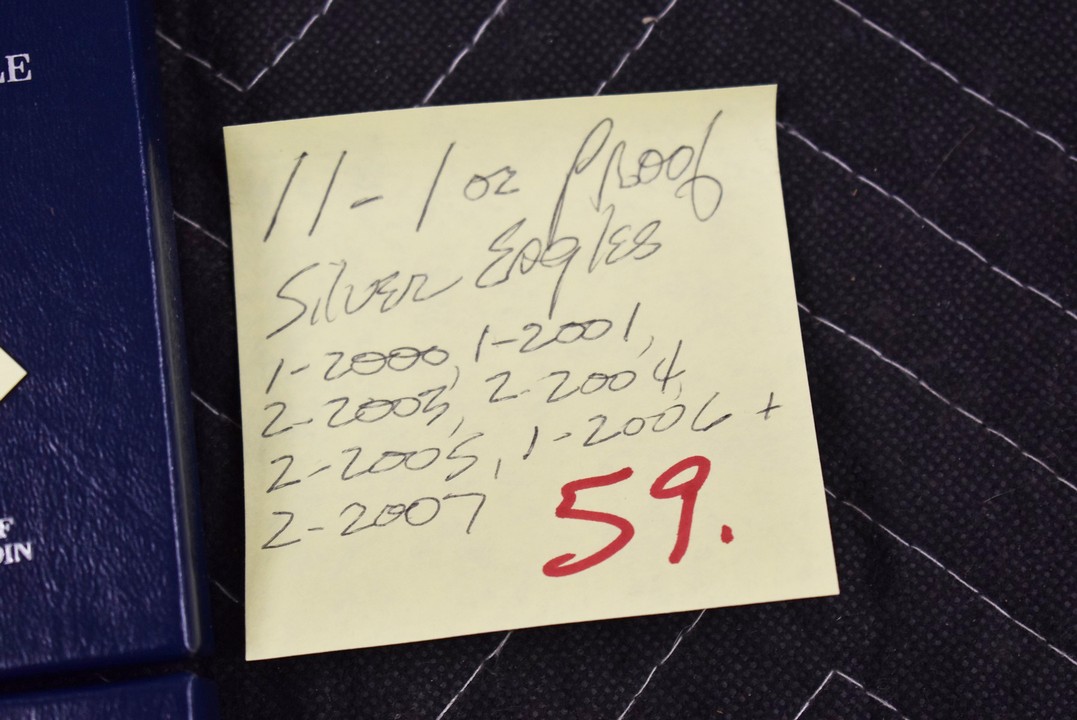 LE
F
OIN
11-1 oz Proof
Silver Eagles
1-2000, 1-2001,
2-2003, 2-2004,
2-2005, 1-2006 +
2-2007
59.